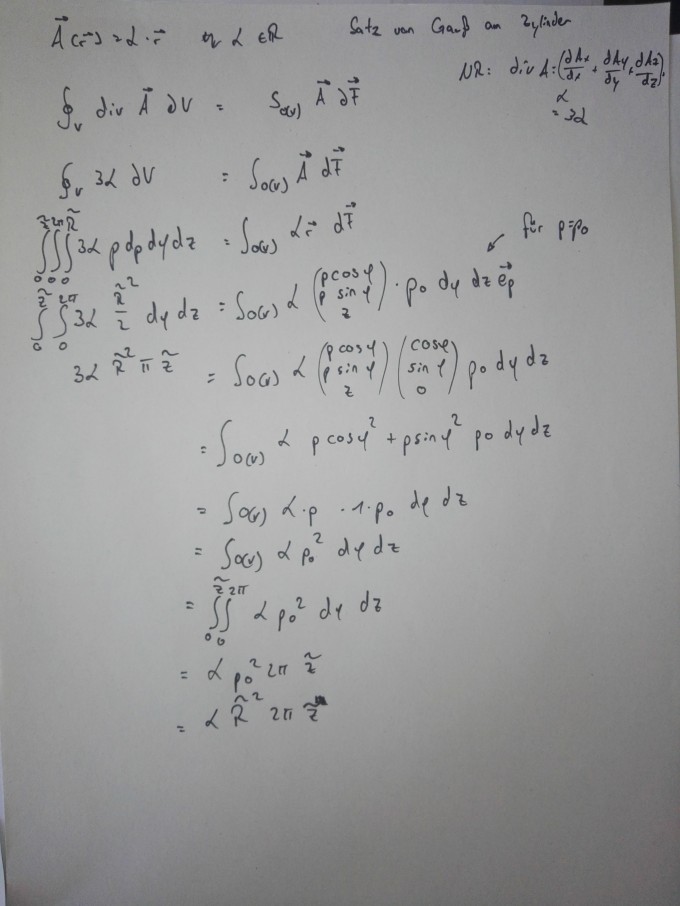 A⃗(r⃗) = α · r⃗ α ∈ ℝ Satz von Gauß am Zylinder
NR: div A = (dAx/dx + dAy/dy + dAz/dz)
α
= 3α
∮_V div A⃗ ∂V = S_O(V) A⃗ ∂F⃗
∮_V 3α ∂V = ∫_O(V) A⃗ dF⃗
∫_0^z̃ ∫_0^2π ∫_0^R̃ 3α ρ dρ dφ dz = ∫_O(V) α r⃗ dF⃗
für ρ=ρ0
∫_0^z̃ ∫_0^2π 3α R̃²/2 dφ dz = ∫_O(V) α (ρ cosφ, ρ sinφ, z) · ρ0 dφ dz e⃗ρ
3α R̃² π z̃ = ∫_O(V) α (ρ cosφ, ρ sinφ, z) (cosφ, sinφ, 0) ρ0 dφ dz
= ∫_O(V) α ρ cosφ² + ρ sinφ² ρ0 dφ dz
= ∫_O(V) α · ρ · 1 · ρ0 dφ dz
= ∫_O(V) α ρ0² dφ dz
= ∫_0^z̃ ∫_0^2π α ρ0² dφ dz
= α ρ0² 2π z̃
= α R̃² 2π z̃